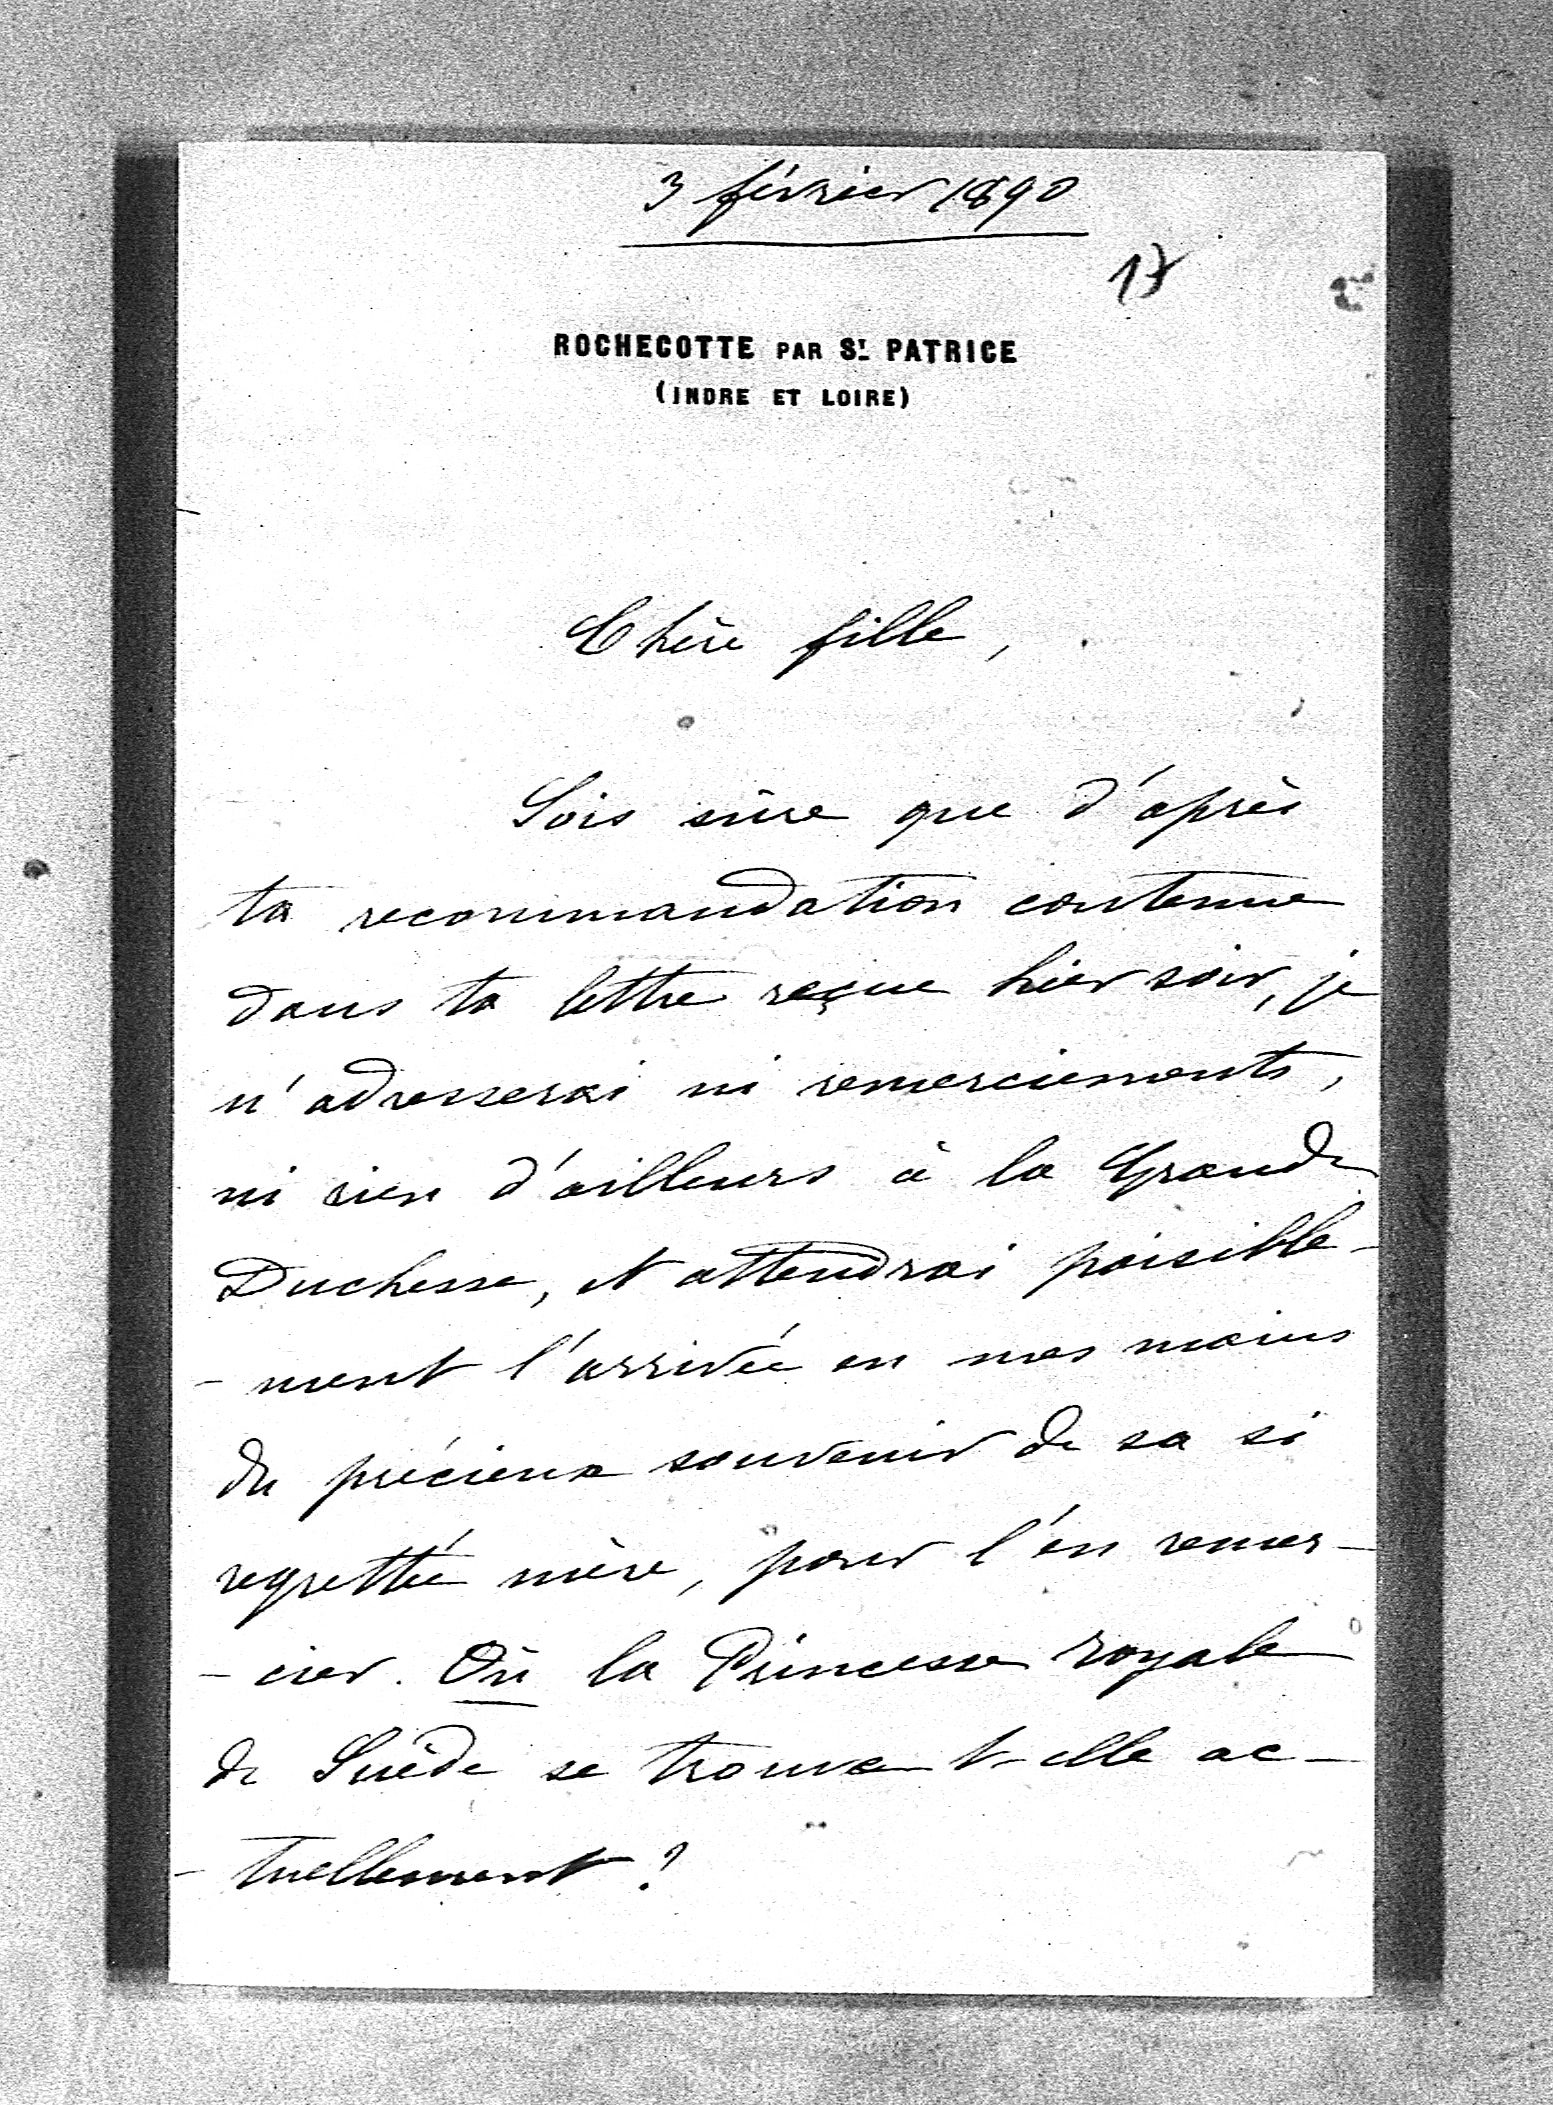 3 février 1890
17
ROCHECOTTE PAR ST. PATRICE
(INDRE ET LOIRE)
Chère fille,
Sois sûre que d'après
ta recommandation contenue
dans ta lettre reçue hier soir, je
n'adresserai ni remerciements,
ni rien d'ailleurs à la Grande
Duchesse, et attendrai paisible-
-ment l'arrivée en mes mains
du précieux souvenir de sa si
regrettée mère, pour l'en remer-
-cier. Où la Princesse royale
de Suède se trouve t-elle ac-
-tuellement?